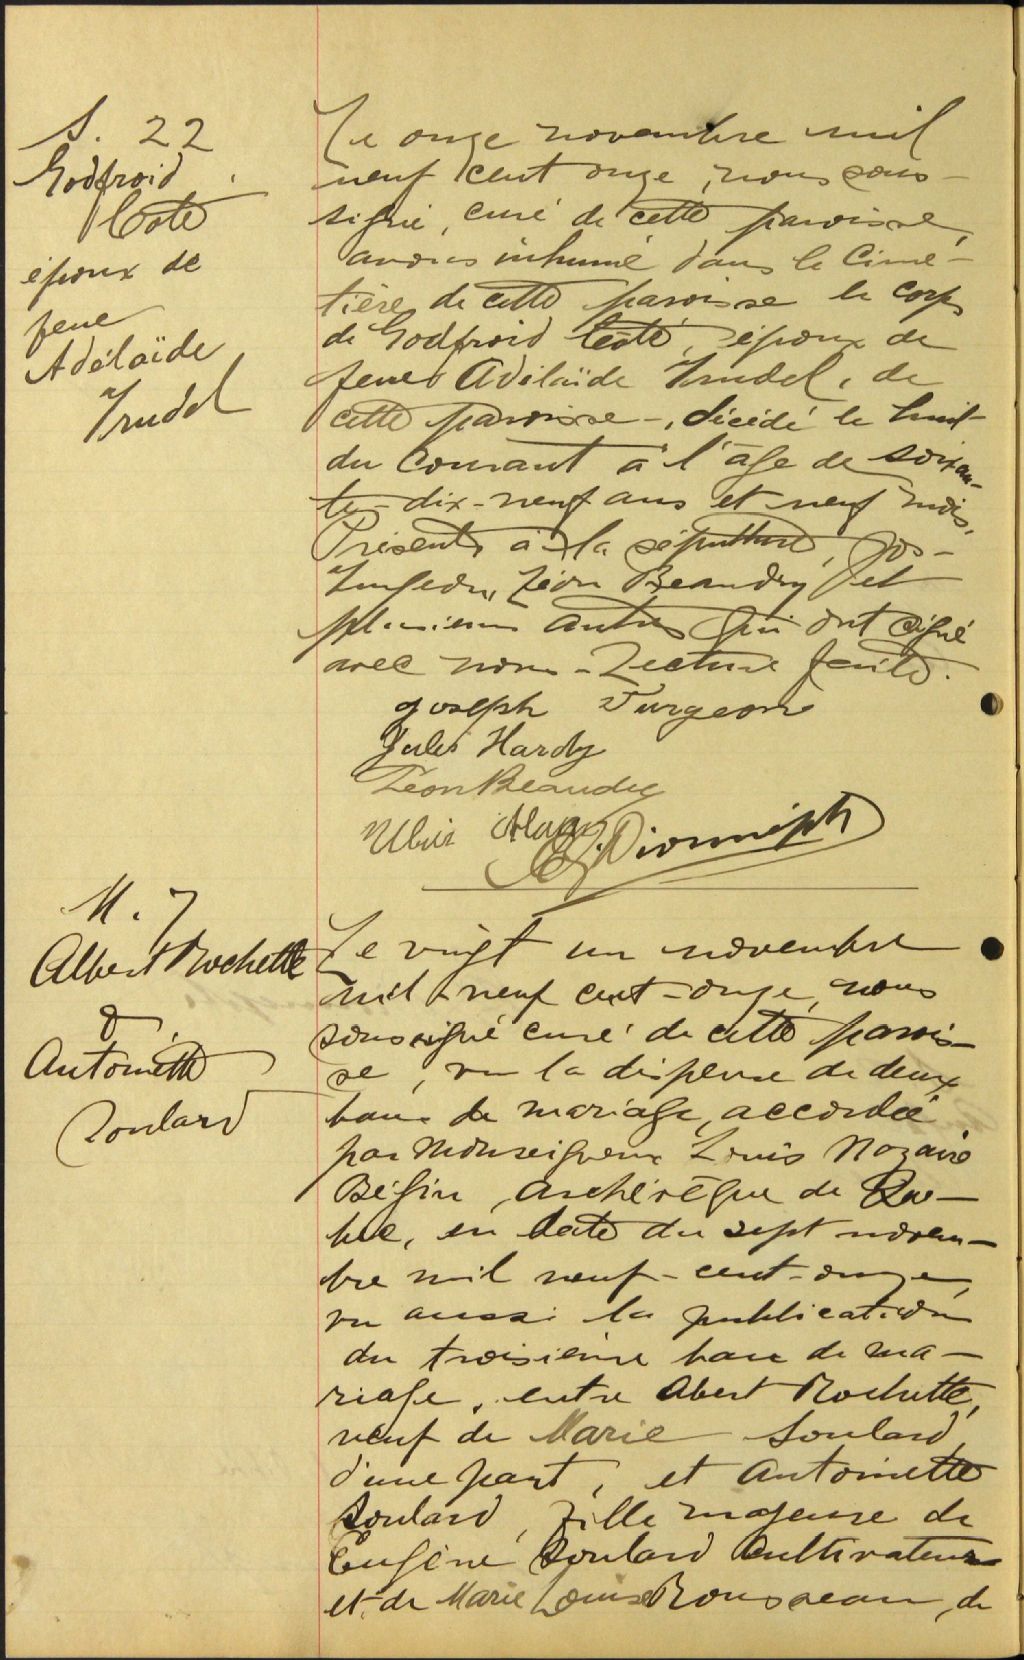 S. 22
Godfroid
Coté
époux de
feue
Adélaïde
Trudel
Le onze novembre mil
neuf cent onze, nous sous-
signé, curé de cette paroisse,
avons inhumé dans le cime-
tière de cette paroisse le corps
de Godfroid Coté, époux de
feue Adélaïde Trudel, de
cette paroisse -, décédé le huit
du courant à l'âge de soixan-
te-dix-neuf ans et neuf mois.
Présents à la sépulture, Jos-
Turgeon, Léon Beaudry et
plusieurs autres qui ont signé
avec nous - Lecture faite.
Joseph Turgeon
Jules Hardy
Léon Beaudry
Dionne ptr
M. 7
Albert Rochette
&
Antoinette
Soulard
Le vingt un novembre
mil-neuf cent-onze, nous
soussigné curé de cette parois-
se, vu la dispense de deux
bans de mariage, accordée
par Monseigneur Louis Nazaire
Bégin, archevêque de Qué-
bec, en date du sept novem-
bre mil neuf-cent-onze,
vu aussi la publication
du troisième banc de ma-
riage, entre Abert Rochette,
veuf de Marie Soulard,
d'une part, et Antoinette
Soulard, fille majeure de
Eugène Soulard cultivateur
et de Marie Louise Rousseau, de